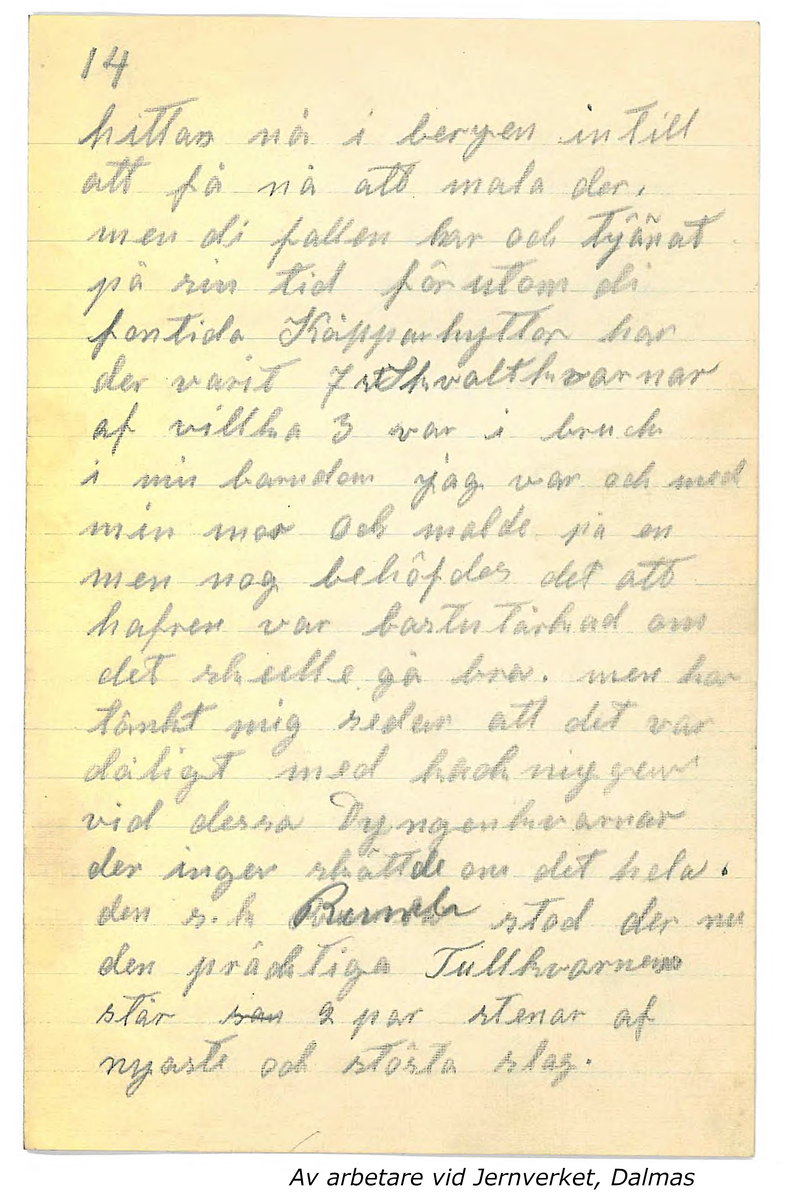 14
hittas nå i bergen intill
att få nå att mala der.
men di fallen har och tjänat
på sin tid förutom di
fontida Kåpparhyttor har
der varit 7 st Skvaltkvarnar
af villka 3 var i bruck
i min barndom jag var och med
min mor och malde på en
men nog behöfdes det att
hafren var bastutårkad om
det skulle gå bra. men har
tänkt mig sedan att det var
dåligt med hackningen
vid dessa Dyngenkvarnar
der inger skåttde om det hela.
den s.k stod der nu
den pråcktiga Tullkvarnen
står 2 par stenar af
nyaste och stösta slag.
Av arbetare vid Jernverket, Dalmas